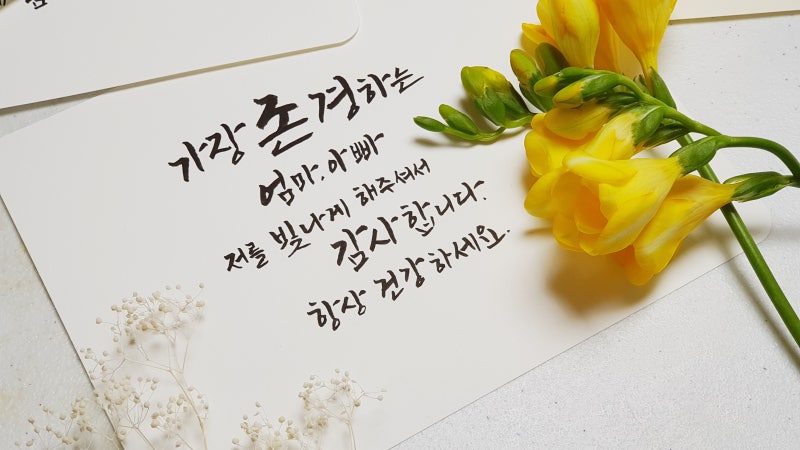 가장 존경하는
엄마, 아빠
저를 빛나게 해주셔서
감사합니다.
항상 건강하세요.